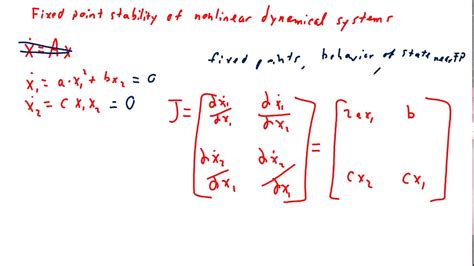 Fixed point stability of nonlinear dynamical systems
ẋ = A x
fixed points, behavior of state near FP
ẋ₁ = a·x₁² + bx₂ = 0
ẋ₂ = c x₁x₂ = 0
J = [∂ẋ₁/∂x₁ ∂ẋ₁/∂x₂; ∂ẋ₂/∂x₁ ∂ẋ₂/∂x₁] = [2ax₁ b; cx₂ cx₁]